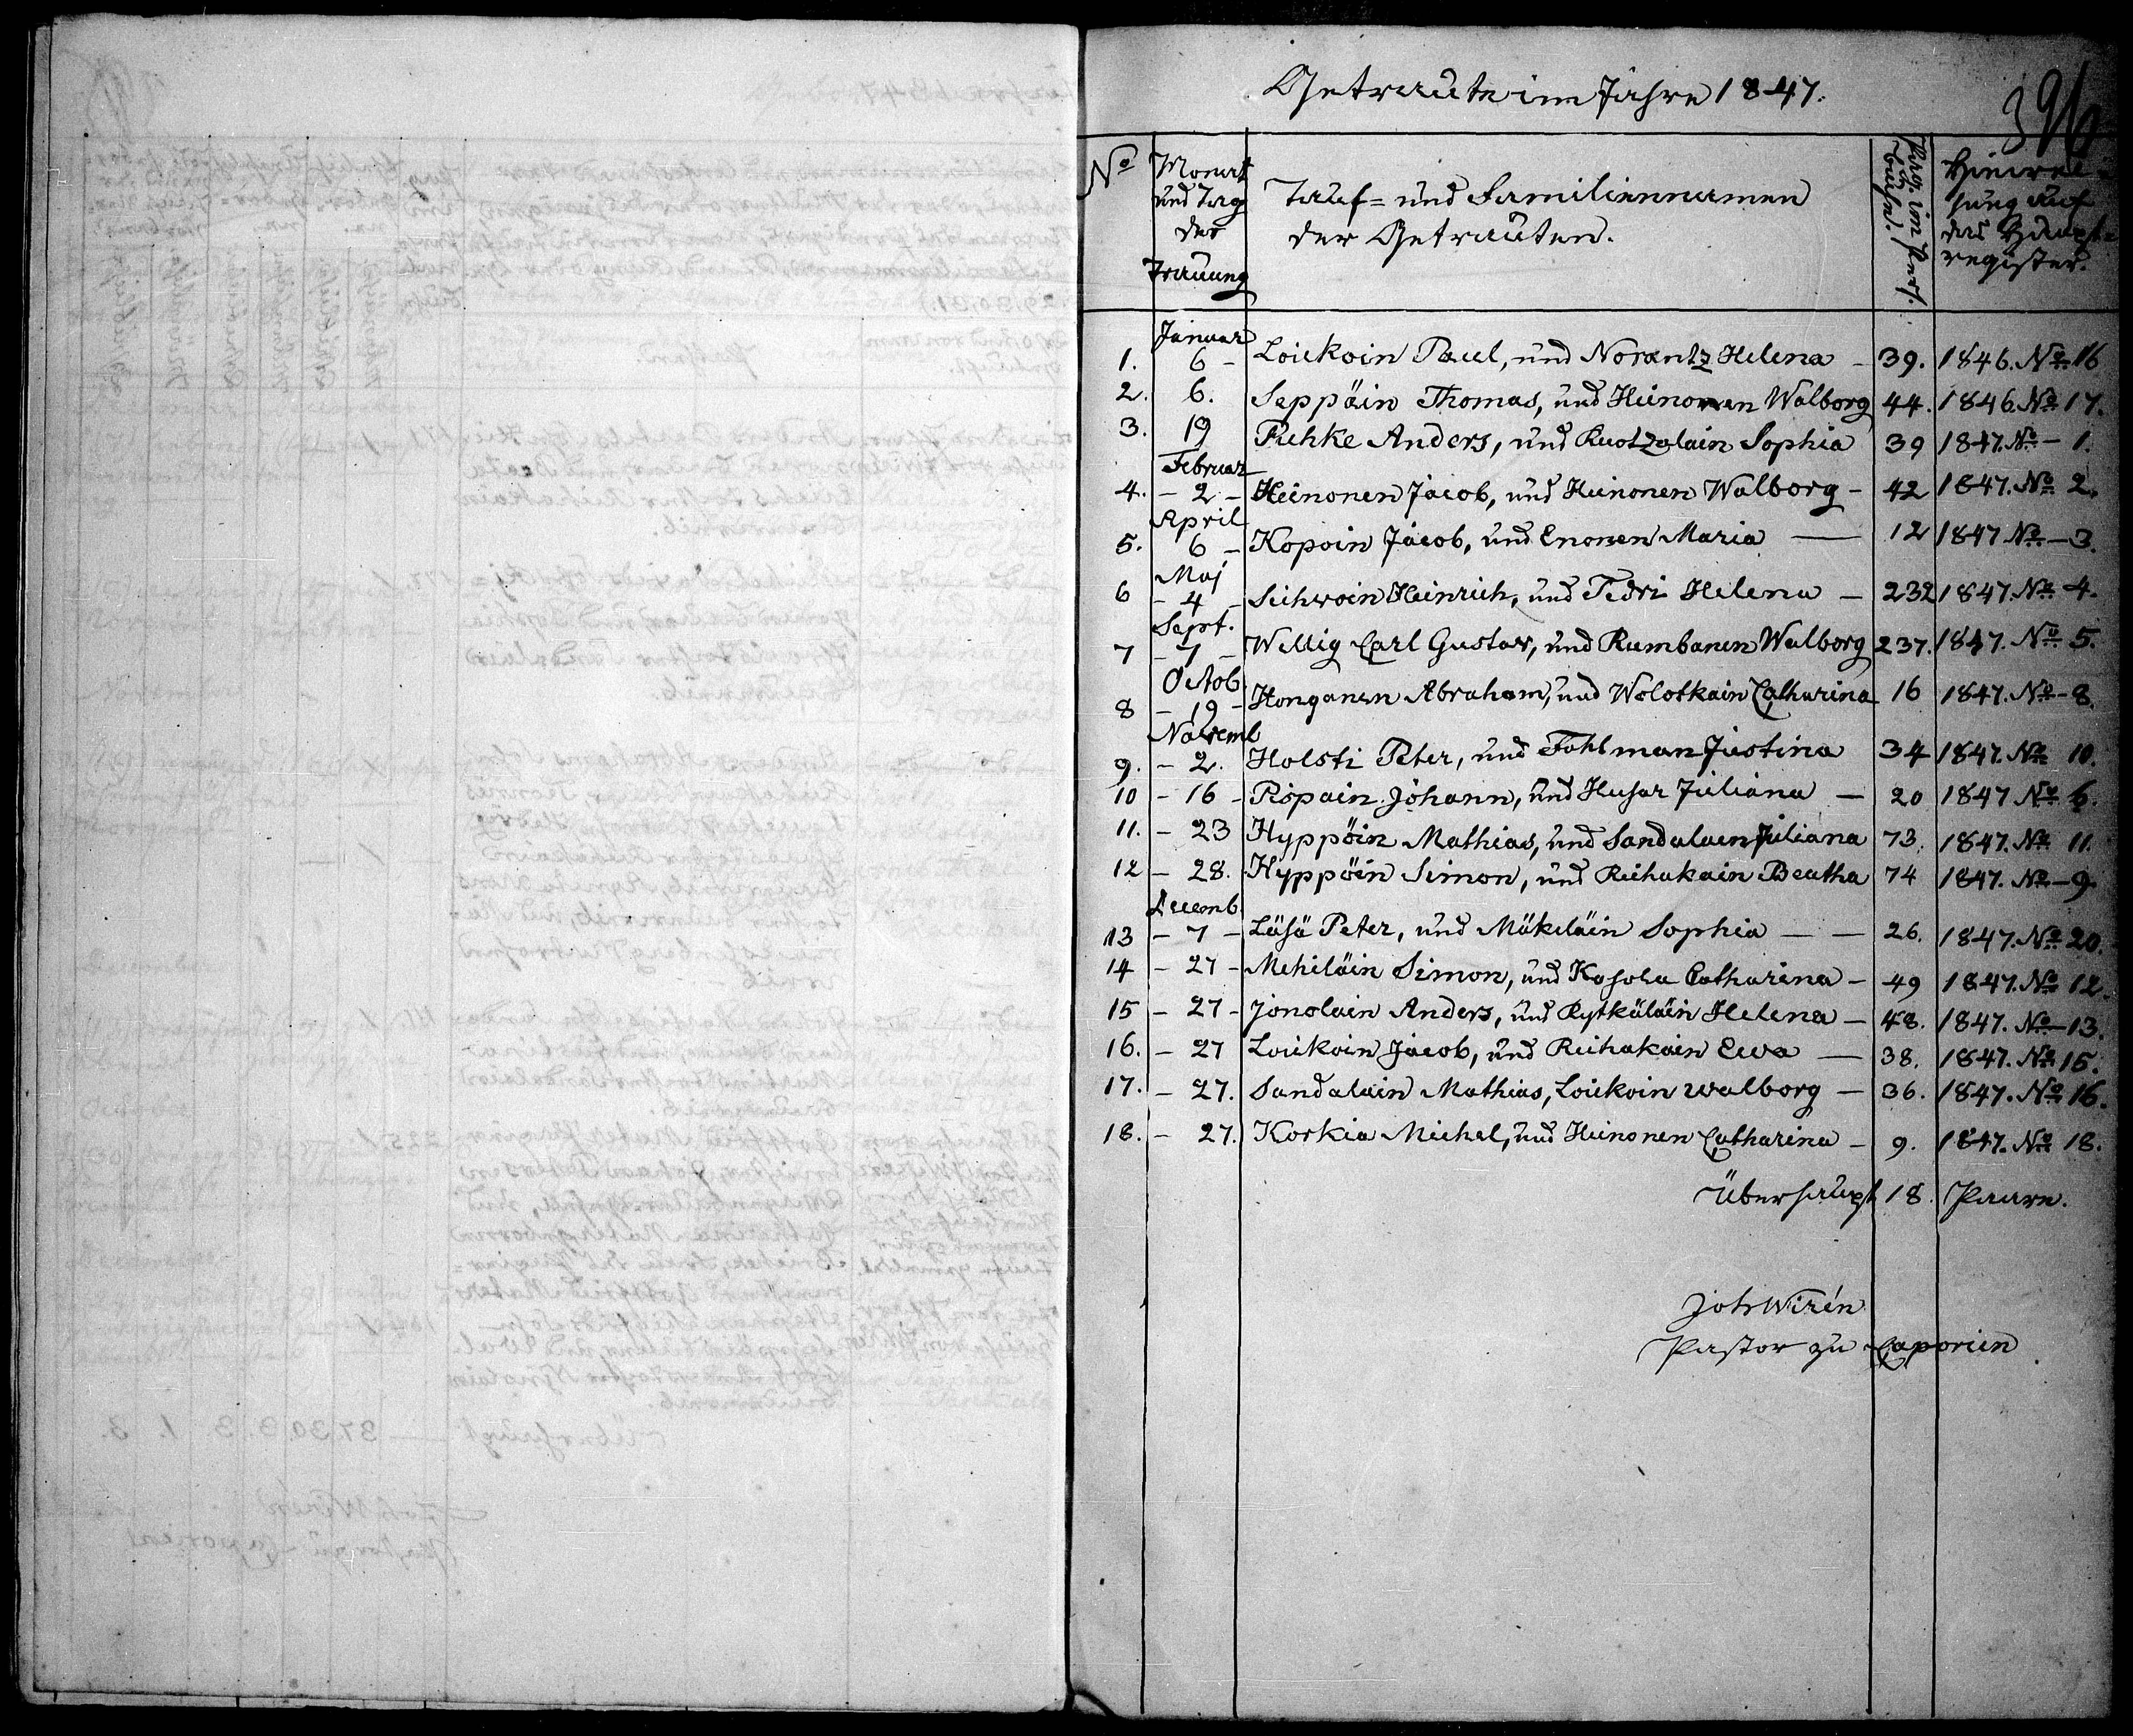 Getraute im Jahre 1847.
396
No Monat und Tag der Trauung Tauf= und Familiennamen der Getrauten. Pag. im Pers. buche. Hinwei= sung auf das Haupt= register.
Januar
1. 6 - Loukoin Paul, und Norantz Helena - 39. 1846. No 16
2. 6. Seppöin Thomas, und Heinonen Walborg 44. 1846. No 17.
3. 19 Puhke Anders, und Ruotzalain Sophia 39 1847. No - 1.
Februar
4. - 2 - Heinonen Jacob, und Heinonen Walborg - 42 1847. No 2.
April
5. 6 - Kopoin Jacob, und Enonen Maria — 12 1847 No - 3.
Maj
6 - 4 - Sihwoin Heinrich, und Tedri Helena - 232 1847. No 4.
Sept.
7 - 7 - Wellig Carl Gustav, und Rumbanen Walborg 237. 1847. No 5.
Octob
8 - 19 - Honganen Abraham, und Wolotkain Catharina 16 1847. No - 8.
Novemb
9. - 2. Holsti Peter, und Fohlman Justina 34 1847. No 10.
10 - 16 - Rispain Johann, und Husar Juliana — 20 1847 No 6.
11. - 23 Hyppöin Mathias, und Sandalain Juliana 73. 1847. No 11.
12 - 28. Hyppöin Simon, und Reihakain Beatha 74 1847. No - 9.
Decemb.
13 - 7 - Läsä Peter, und Mäkeläin Sophia — — 26. 1847. No 20.
14 - 27 - Mehiläin Simon, und Kasola Catharina - 49 1847. No 12.
15 - 27 - Jonolain Anders, und Rytkäläin Helena - 48. 1847. No - 13.
16. - 27 Loukoin Jacob, und Reihakain Ewa — 38. 1847. No 15.
17. - 27. Sandalain Mathias, Loukoin Walborg — 36. 1847. No 16.
18. - 27. Korkia Michel, und Heinonen Catharina - 9. 1847. No 18.
Überhaupt 18. Paare.
Joh Wirén
Pastor zu Caporien